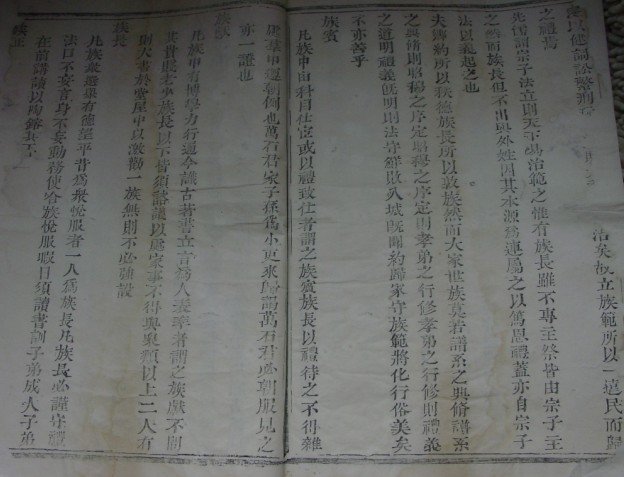 忿以健訟訟警刑
治矣故立族範所以一道民而歸
之禮焉
先儒謂宗子法立則天下易治範之惟有族長雖不專主祭皆由宗子主
之然而族長但不出與外姓因其本源爲連屬之以篤恩禮蓋亦自宗子
法以義起之也
夫鄉約所以秩德族長所以敦族然而大家世族莫若譜系之與脩譜系
之與脩則昭穆之序定昭穆之序定則孝弟之行修孝弟之行修則禮義
之道明禮義旣明則法守鮮敗入城旣聞約歸家守族範將化行俗美矣
不亦善乎
族賓
凡族中由科目仕宦或以禮致仕者謂之族賓族長以禮待之不得雜
居羣中趨朝例也萬石君家子孫爲小吏來歸謁萬石君必朝服見之
亦一證也
族獻
凡族中有博學力行通今識古著書立言爲人表率者謂之族獻不問
其貴賤老少族長以下皆須諮議以處家事不得與衆類以上二人有
則大書於堂屋中以激勸一族無則不必強設
族長
凡族衆選舉有德望平昔爲衆悅服者一人爲族長凡族長必謹守禮
法口不妄言身不妄動務使合族悅服暇日須讀書訓子弟成人子弟
在前講讀以陶鎔其
族正